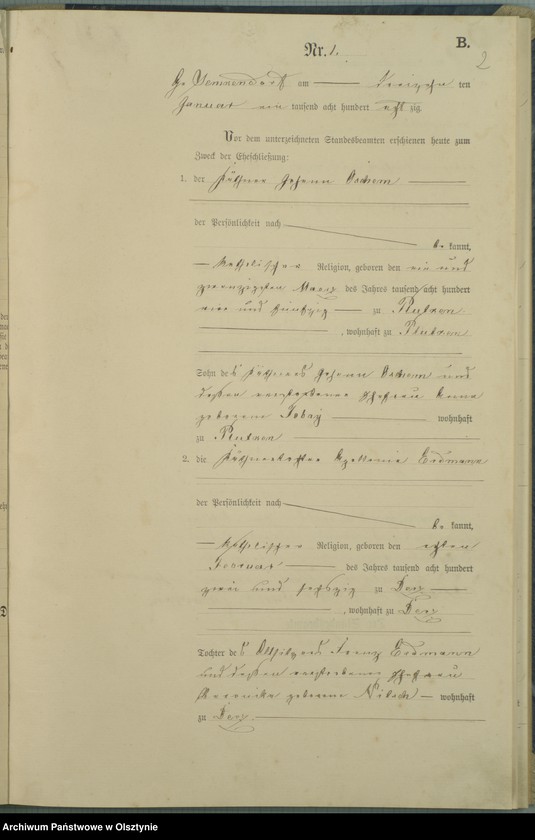 B.
Nr. 1.
2
am dreizehn ten
Januar ein tausend acht hundert acht zig.
Vor dem unterzeichneten Standesbeamten erschienen heute zum
Zweck der Eheschließung:
1. der Käthner Johann
der Persönlichkeit nach
be kannt,
katholischer Religion, geboren den ein und
zwanzigsten März des Jahres tausend acht hundert
vier und fünfzig zu
, wohnhaft zu
Sohn des Käthners Johann und
dessen verstorbener Ehefrau Anna
geborene wohnhaft
zu
2. die Käthnertochter Erdmann
der Persönlichkeit nach
be kannt,
katholischer Religion, geboren den achten
Februar des Jahres tausend acht hundert
zwei und sechszig zu Derz
, wohnhaft zu Derz
Tochter des Altsitzers Franz Erdmann
und dessen verstorbener Ehefrau
Veronika geborene wohnhaft
zu Derz
Archiwum Państwowe w Olsztynie